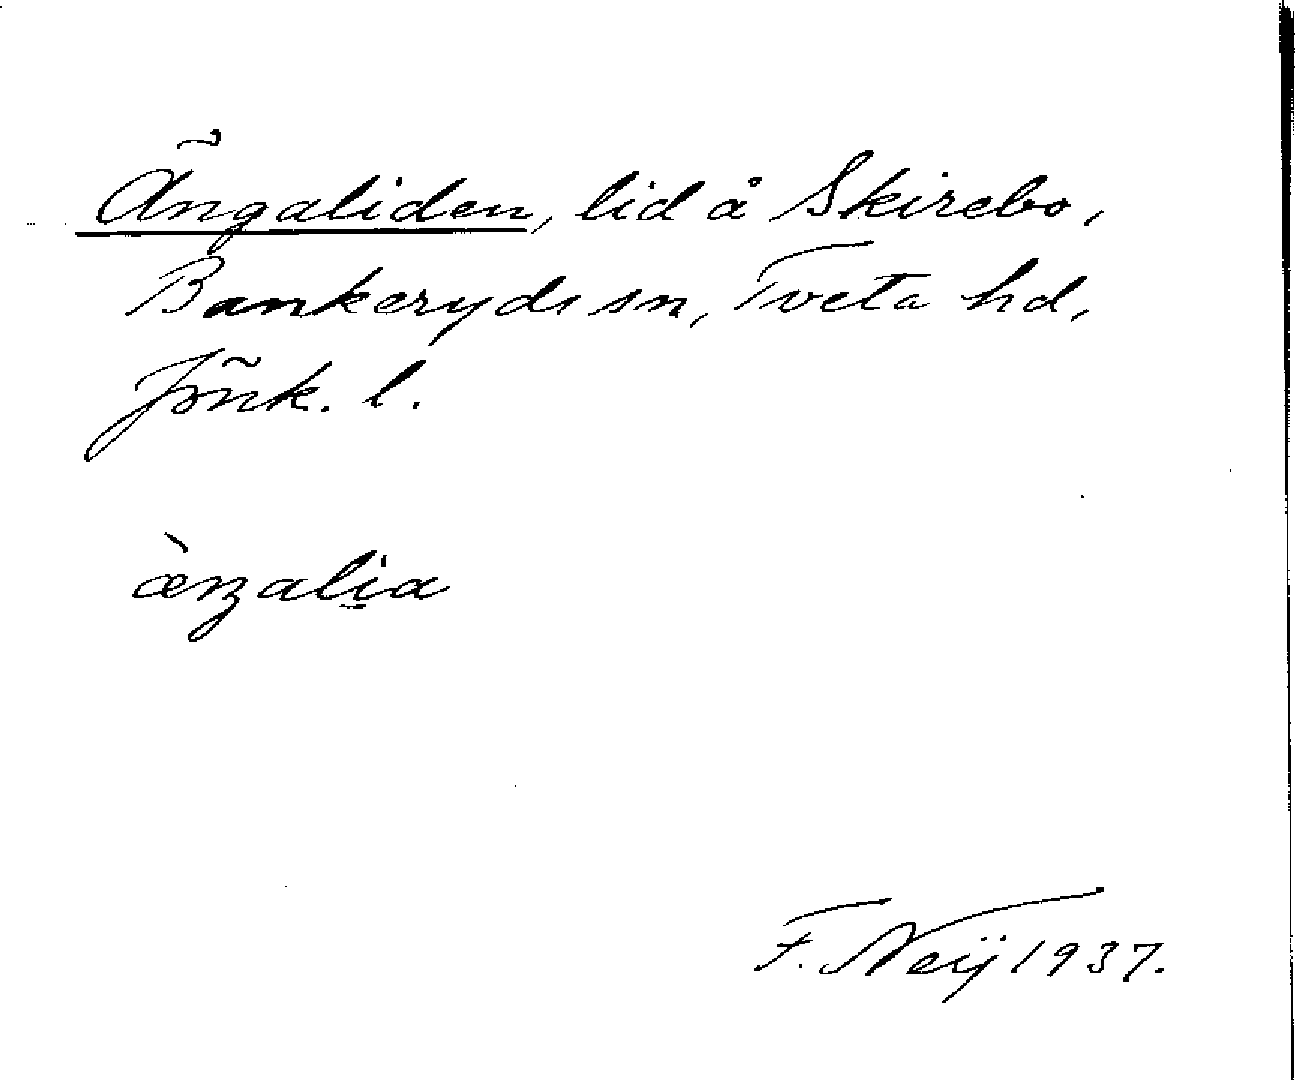 Ängaliden, lid å Skirebo,
Bankeryds sn, Tveta hd,
Jönk. l.
æ̀ŋali̠a
F. Neij 1937.